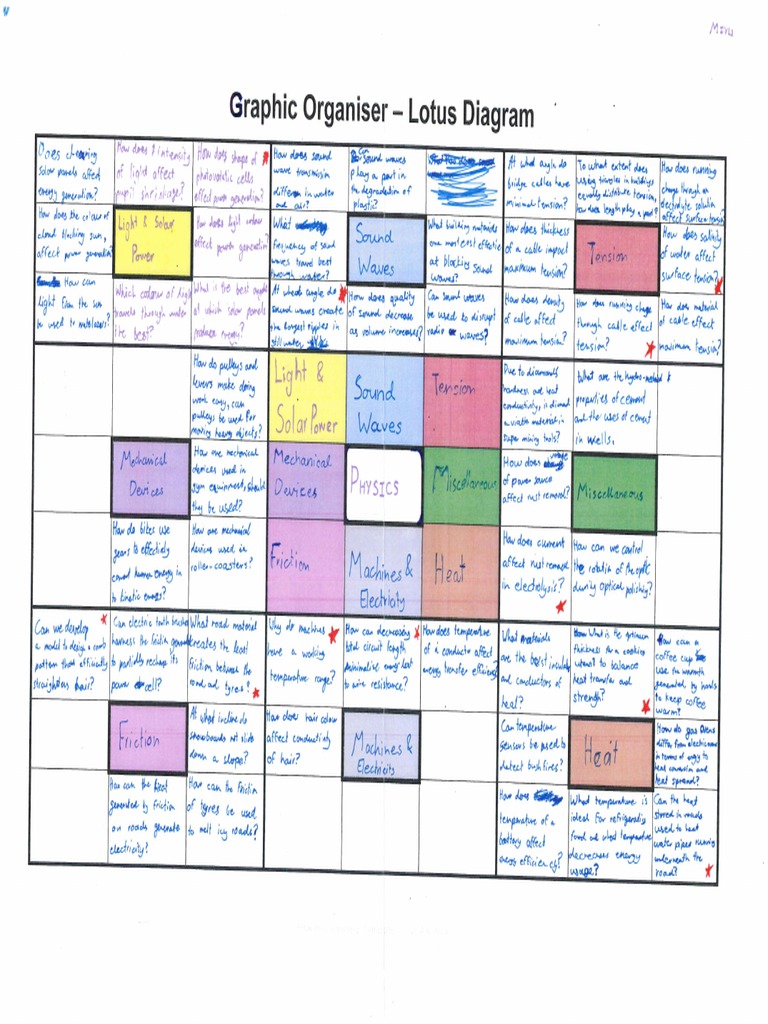 Graphic Organiser – Lotus Diagram
Does cleaning
solar panels affect
energy generation?
How does intensity
of light affect
pupil shrinkage?
How does shape of
photovoltaic cells
effect power generation?
How does sound
wave transmission
differ in water
and air?
Can sound waves
play a part in
the degradation of
plastic?
At what angle do
bridge cables have
minimal tension?
To what extent does
using triangles in buildings
equally distribute tension,
how does length play a part?
How does running
charge through an
electrolyte solution
affect surface tension
How does the colour of
cloud blocking sun,
affect power generation?
Light & Solar
Power
How does light colour
affect power generation
What
frequency of sound
waves travel best
through water?
Sound
Waves
What building materials
are most cost effective
at blocking sound
waves?
How does thickness
of a cable impact
maximum tension?
Tension
How does salinity
of water affect
surface tension?
How can
light from the sun
be used to
Which colour of light
travels through water
the best?
What is the best angle
at which solar panels
produce energy?
At what angle do
sound waves create
the largest ripples in
still water
How does quality
of sound decrease
as volume increases?
Can sound waves
be used to disrupt
radio waves?
How does density
of cable affect
maximum tension?
How does running charge
through cable effect
tension?
How does material
of cable effect
maximum tension?
How do pulleys and
levers make doing
work easy, can
pulleys be used for
moving heavy objects?
Light &
Solar Power
Sound
Waves
Tension
Due to diamonds
hardness and heat
conductivity, is diamond
a viable material in
super mining tools?
What are the
properties of cement
and the uses of cement
in wells.
Mechanical
Devices
How are mechanical
devices used in
gym equipment, should
they be used?
Mechanical
Devices
PHYSICS
Miscellaneous
How does voltage
of power source
affect rust removal?
Miscellaneous
How do bikes use
gears to effectively
convert human energy in
to kinetic energy?
How are mechanical
devices used in
roller-coasters?
Friction
Machines &
Electricity
Heat
How does current
affect rust removal
in electolysis?
How can we control
the rotation of the optic
during optical polishing?
Can we develop
a model to design a comb
pattern that efficiently
straightens hair?
Can electric tooth brushes
harness the friction generated
to partially recharge its
power cell?
What road material
creates the least
friction between the
road and tyres?
Why do machines
have a working
temperature range?
How can decreasing
total circuit length
minimalise energy lost
to wire resistance?
How does temperature
of a conductor affect
energy transfer efficiency?
What materials
are the best insulators
and conductors of
heat?
What is the optimum
thickness for a cooking
utensil to balance
heat transfer and
strength?
How can a
coffee cup
use the warmth
generated by hands
to keep coffee
warm?
Friction
At what incline do
snowboards not slide
down a slope?
How does hair colour
affect conductivity
of hair?
Machines &
Electricity
Can temperature
sensors be used to
detect bushfires?
Heat
How do gas ovens
differ from electric ovens
in terms of energy to
heat conversion and
heat spread?
How can the heat
generated by friction
on roads generate
electricity?
How can the friction
of tyres be used
to melt icy roads?
How does
temperature of a
battery affect
energy efficiency?
What temperature is
ideal for refrigerating
food and what temperature
decreases energy
usage?
Can the heat
stored in roads
used to heat
water pipes running
underneath the
road?